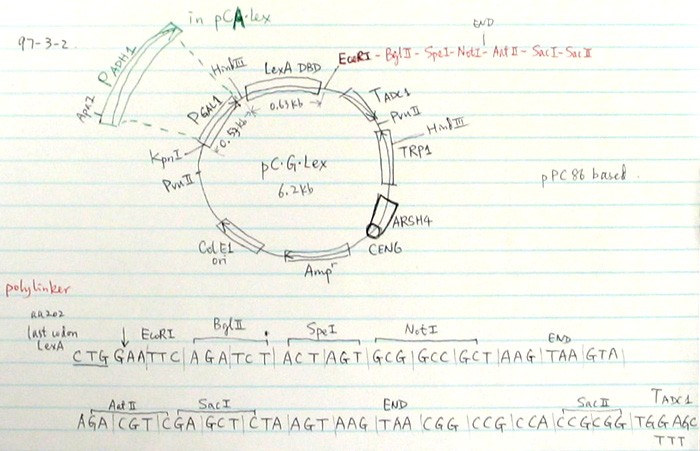 in pCA-lex
97-3-2
END
EcoRI - BglII - SpeI - NotI - AatII - SacI - SacII
HindIII
LexA DBD
PADH1
ApaI
PGAL1
0.63kb
0.59kb
TADC1
PvuII
HindIII
KpnI
PvuII
pC·G·Lex
6.2kb
TRP1
pPC86 based.
ARSH4
CEN6
ColE1
ori
Ampr
polylinker
aa202
last codon
LexA
EcoRI
BglII
SpeI
NotI
END
CTG GAA|TTC|AGA|TCT|ACT|AGT|GCG|GCC|GCT|AAG|TAA|GTA|
AatII
SacI
END
SacII
TADC1
AGA|CGT|CGA|GCT|CTA|AGT|AAG|TAA|CGG|CCG|CCA|CCGCGG|TGGAGC
TTT